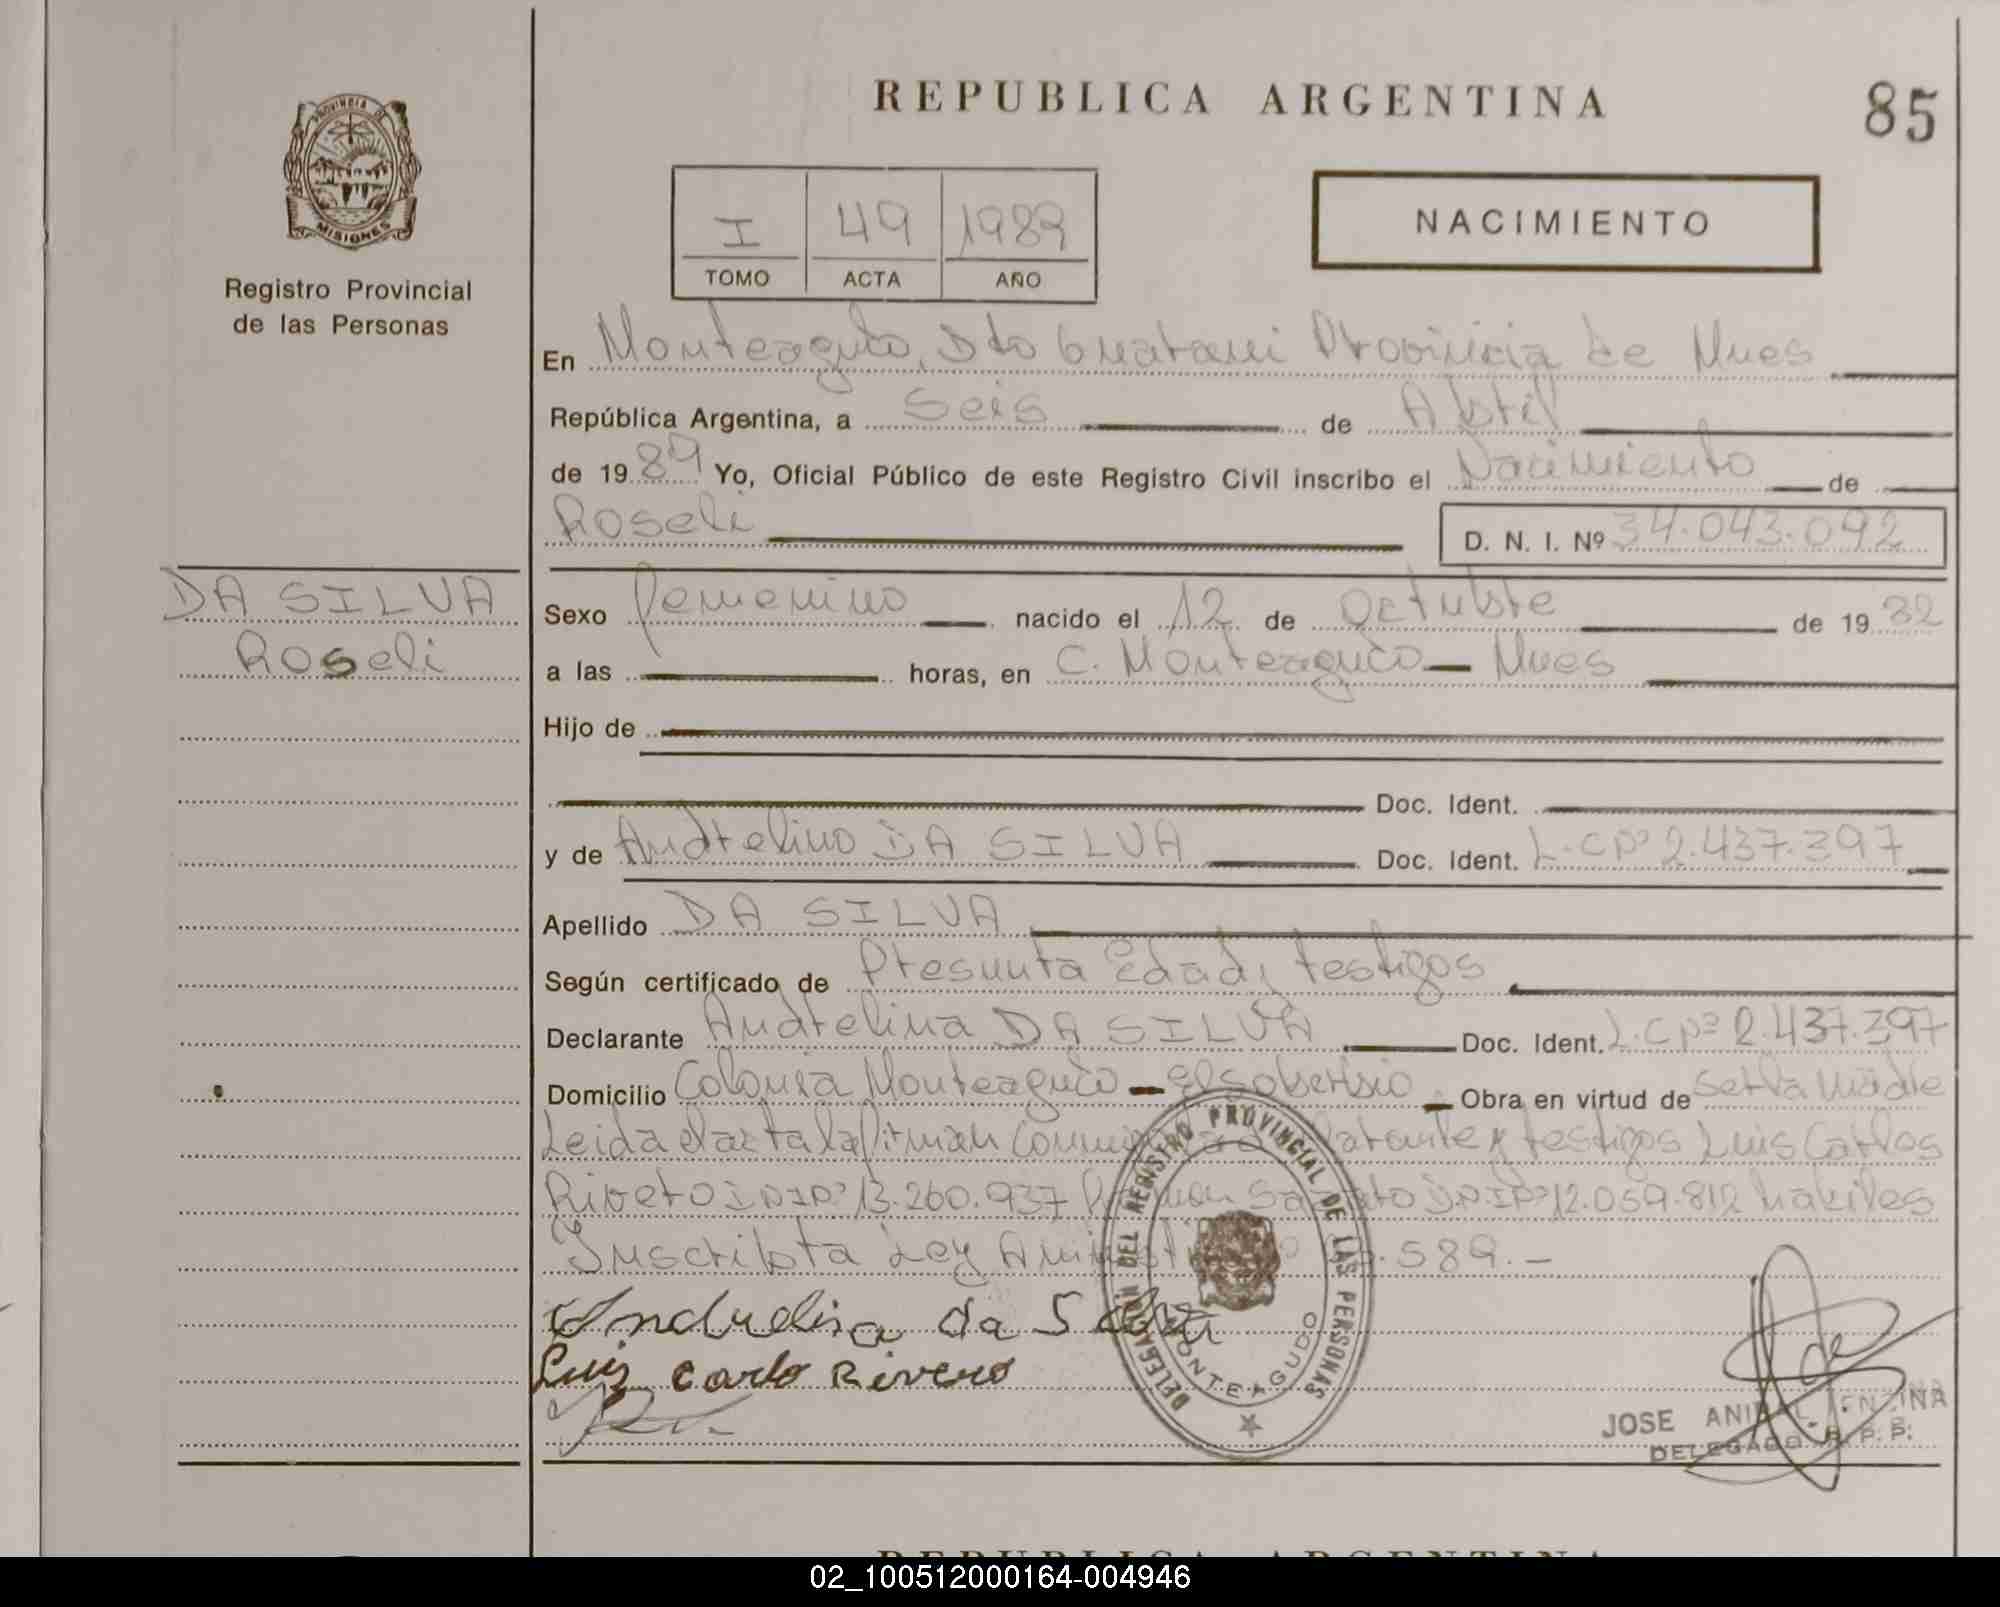 REPUBLICA ARGENTINA
85
PROVINCIA DE
MISIONES
Registro Provincial
de las Personas
I
49
1989
TOMO
ACTA
AÑO
NACIMIENTO
En Monteagudo, Dto Guarani Provincia de Mnes
República Argentina, a Seis de Abril
de 1989 Yo, Oficial Público de este Registro Civil inscribo el Nacimiento de
Roseli D. N. I. Nº 34.043.092
DA SILVA
Roseli
Sexo femenino nacido el 12 de Octubre de 1982
a las horas, en C. Monteagudo - Mnes
Hijo de
Doc. Ident.
y de Andrelino DA SILVA Doc. Ident. L.C Nº 2.437.397
Apellido DA SILVA
Según certificado de Presunta Edad, testigos
Declarante Andrelina DA SILVA Doc. Ident. L.C Nº 2.437.397
Domicilio Colonia Monteagudo - El Soberbio - Obra en virtud de Ser la Madre
Leida el acta la firman conmigo la testigos Luis Carlos
Rivero DNI Nº 13.260.937 DNI Nº 12.059.812 habiles
Inscribta Ley 589.-
Andrelina da Silva
Luiz Carlo Rivero
DELEGACIÓN DEL REGISTRO PROVINCIAL DE LAS PERSONAS
MONTEAGUDO
JOSE ANIBAL
DELEGADO R. P. P.
02_100512000164-004946